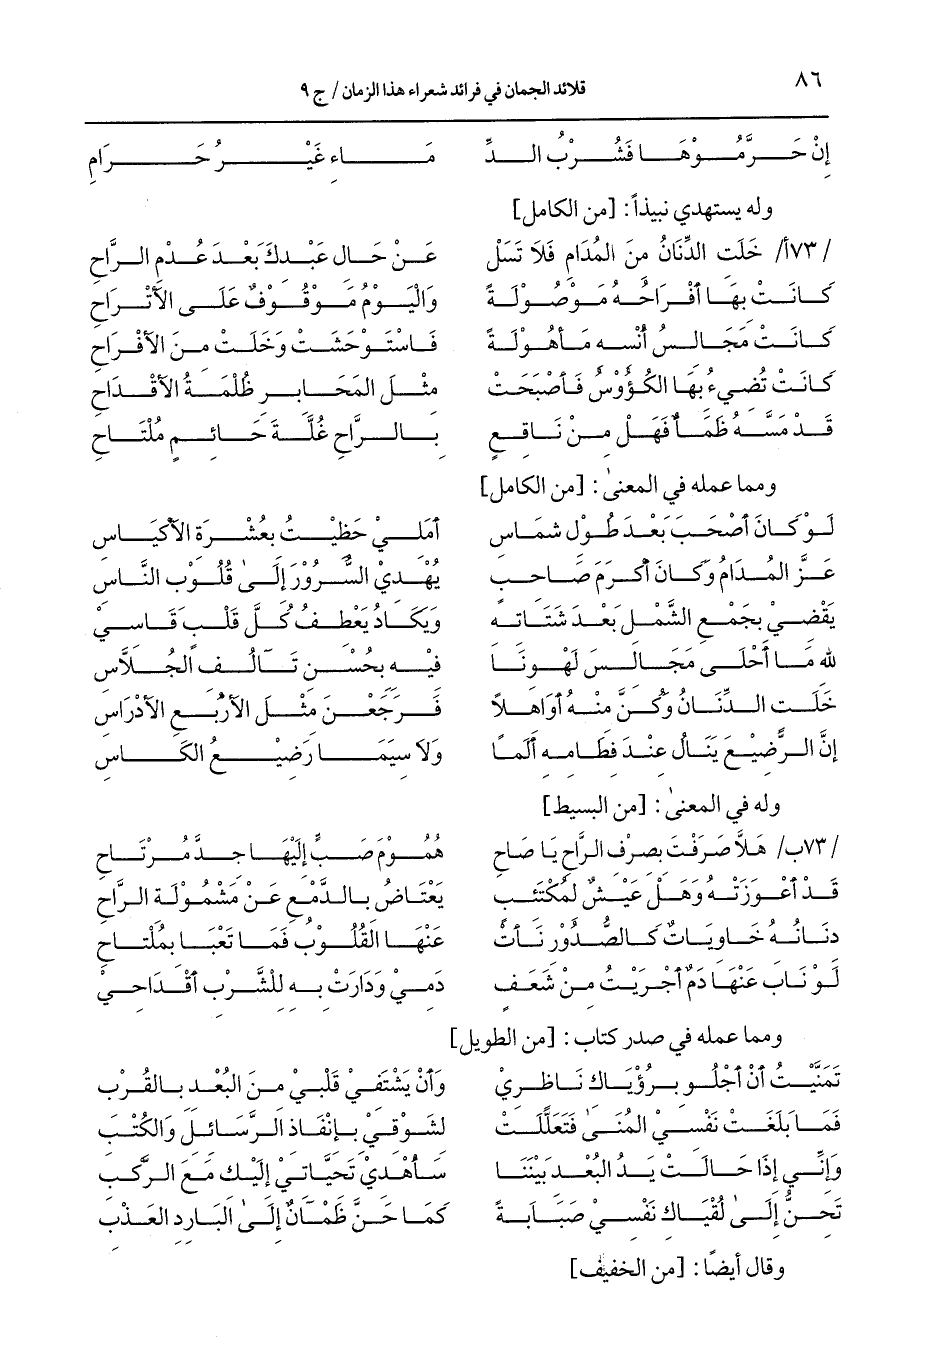 ٨٦
قلائد الجمان في فرائد شعراء هذا الزمان / ج ٩
إنْ حَرَّمُوْهَا فَشُرْبُ الدِّ مَاءِ غَيْرُ حَرَامِ
وله يستهدي نبيذاً: [من الكامل]
/٧٣أ/ خَلَتِ الدِّنَانُ مِنَ المُدَامِ فَلَا تَسَلْ عَنْ حَالِ عَبْدِكَ بَعْدَ عُدْمِ الرَّاحِ
كَانَتْ بِهَا أَفْرَاحُهُ مَوْصُولَةً وَاليَوْمَ مَوْقُوفٌ عَلَى الأَتْرَاحِ
كَانَتْ مَجَالِسُ أُنْسِهِ مَأْهُولَةً فَاسْتَوْحَشَتْ وَخَلَتْ مِنَ الأَفْرَاحِ
كَانَتْ تُضِيءُ بِهَا الكُؤُوسُ فَأَصْبَحَتْ مِثْلَ المَحَابِرِ ظُلْمَةُ الأَقْدَاحِ
قَدْ مَسَّهُ ظَمَأٌ فَهَلْ مِنْ نَاقِعٍ بِالرَّاحِ غُلَّةَ حَائِمٍ مُلْتَاحِ
ومما عمله في المعنىٰ: [من الكامل]
لَوْ كَانَ أَصْحَبَ بَعْدَ طُولِ شِمَاسِ أَمَلِي حَظِيتُ بِعِشْرَةِ الأَكْيَاسِ
عَزَّ المُدَامُ وَكَانَ أَكْرَمَ صَاحِبٍ يُهْدِي السُّرُوْرَ إِلَىٰ قُلُوبِ النَّاسِ
يَقْضِي بِجَمْعِ الشَّمْلِ بَعْدَ شَتَاتِهِ وَيَكَادُ يَعْطِفُ كُلَّ قَلْبٍ قَاسِي
للهِ مَا أَحْلَى مَجَالِسَ لَهْوِنَا فِيْهِ بِحُسْنِ تَآلُفِ الجُلاَّسِ
خَلَتِ الدِّنَانُ وَكُنَّ مِنْهُ أَوَاهِلاً فَرَجَعْنَ مِثْلَ الأَرْبُعِ الأَدْرَاسِ
إِنَّ الرَّضِيْعَ يَنَالُ عِنْدَ فِطَامِهِ أَلَمًا وَلَا سِيَّمَا رَضِيْعِ الكَاسِ
وله في المعنىٰ: [من البسيط]
/٧٣ب/ هَلَّا صَرَفْتَ بِصَرْفِ الرَّاحِ يَا صَاحِ هُمُوْمَ صَبٍّ إِلَيْهَا جِدِّ مُرْتَاحِ
قَدْ أَعْوَزَتْهُ وَهَلْ عَيْشٌ لِمُكْتَئِبٍ يَعْتَاضُ بِالدَّمْعِ عَنْ مَشْمُولَةِ الرَّاحِ
دِنَانُهُ خَاوِيَاتٌ كَالصُّدُورِ نَأَتْ عَنْهَا القُلُوبُ فَمَا تَعْبَا بِمُلْتَاحِ
لَوْ نَابَ عَنْهَا دَمٌ أَجْرَيْتُ مِنْ شَغَفٍ دَمِي وَدَارَتْ بِهِ لِلشَّرْبِ أَقْدَاحِي
ومما عمله في صدر كتاب: [من الطويل]
تَمَنَّيْتُ أَنْ أَجْلُو بِرُؤْيَاكَ نَاظِرِي وَأَنْ يَشْتَفِي قَلْبِي مِنَ البُعْدِ بِالقُرْبِ
فَمَا بَلَغَتْ نَفْسِي المُنَىٰ فَتَعَلَّلَتْ لِشَوْقِي بِإِنْفَاذِ الرَّسَائِلِ وَالكُتْبِ
وَإِنِّي إِذَا حَالَتْ يَدُ البُعْدِ بَيْنَنَا سَأُهْدِي تَحِيَّاتِي إِلَيْكَ مَعَ الرَّكْبِ
تَحِنُّ إِلَىٰ لُقْيَاكَ نَفْسِي صَبَابَةً كَمَا حَنَّ ظَمْآنٌ إِلَىٰ البَارِدِ العَذْبِ
وقال أيضًا: [من الخفيف]